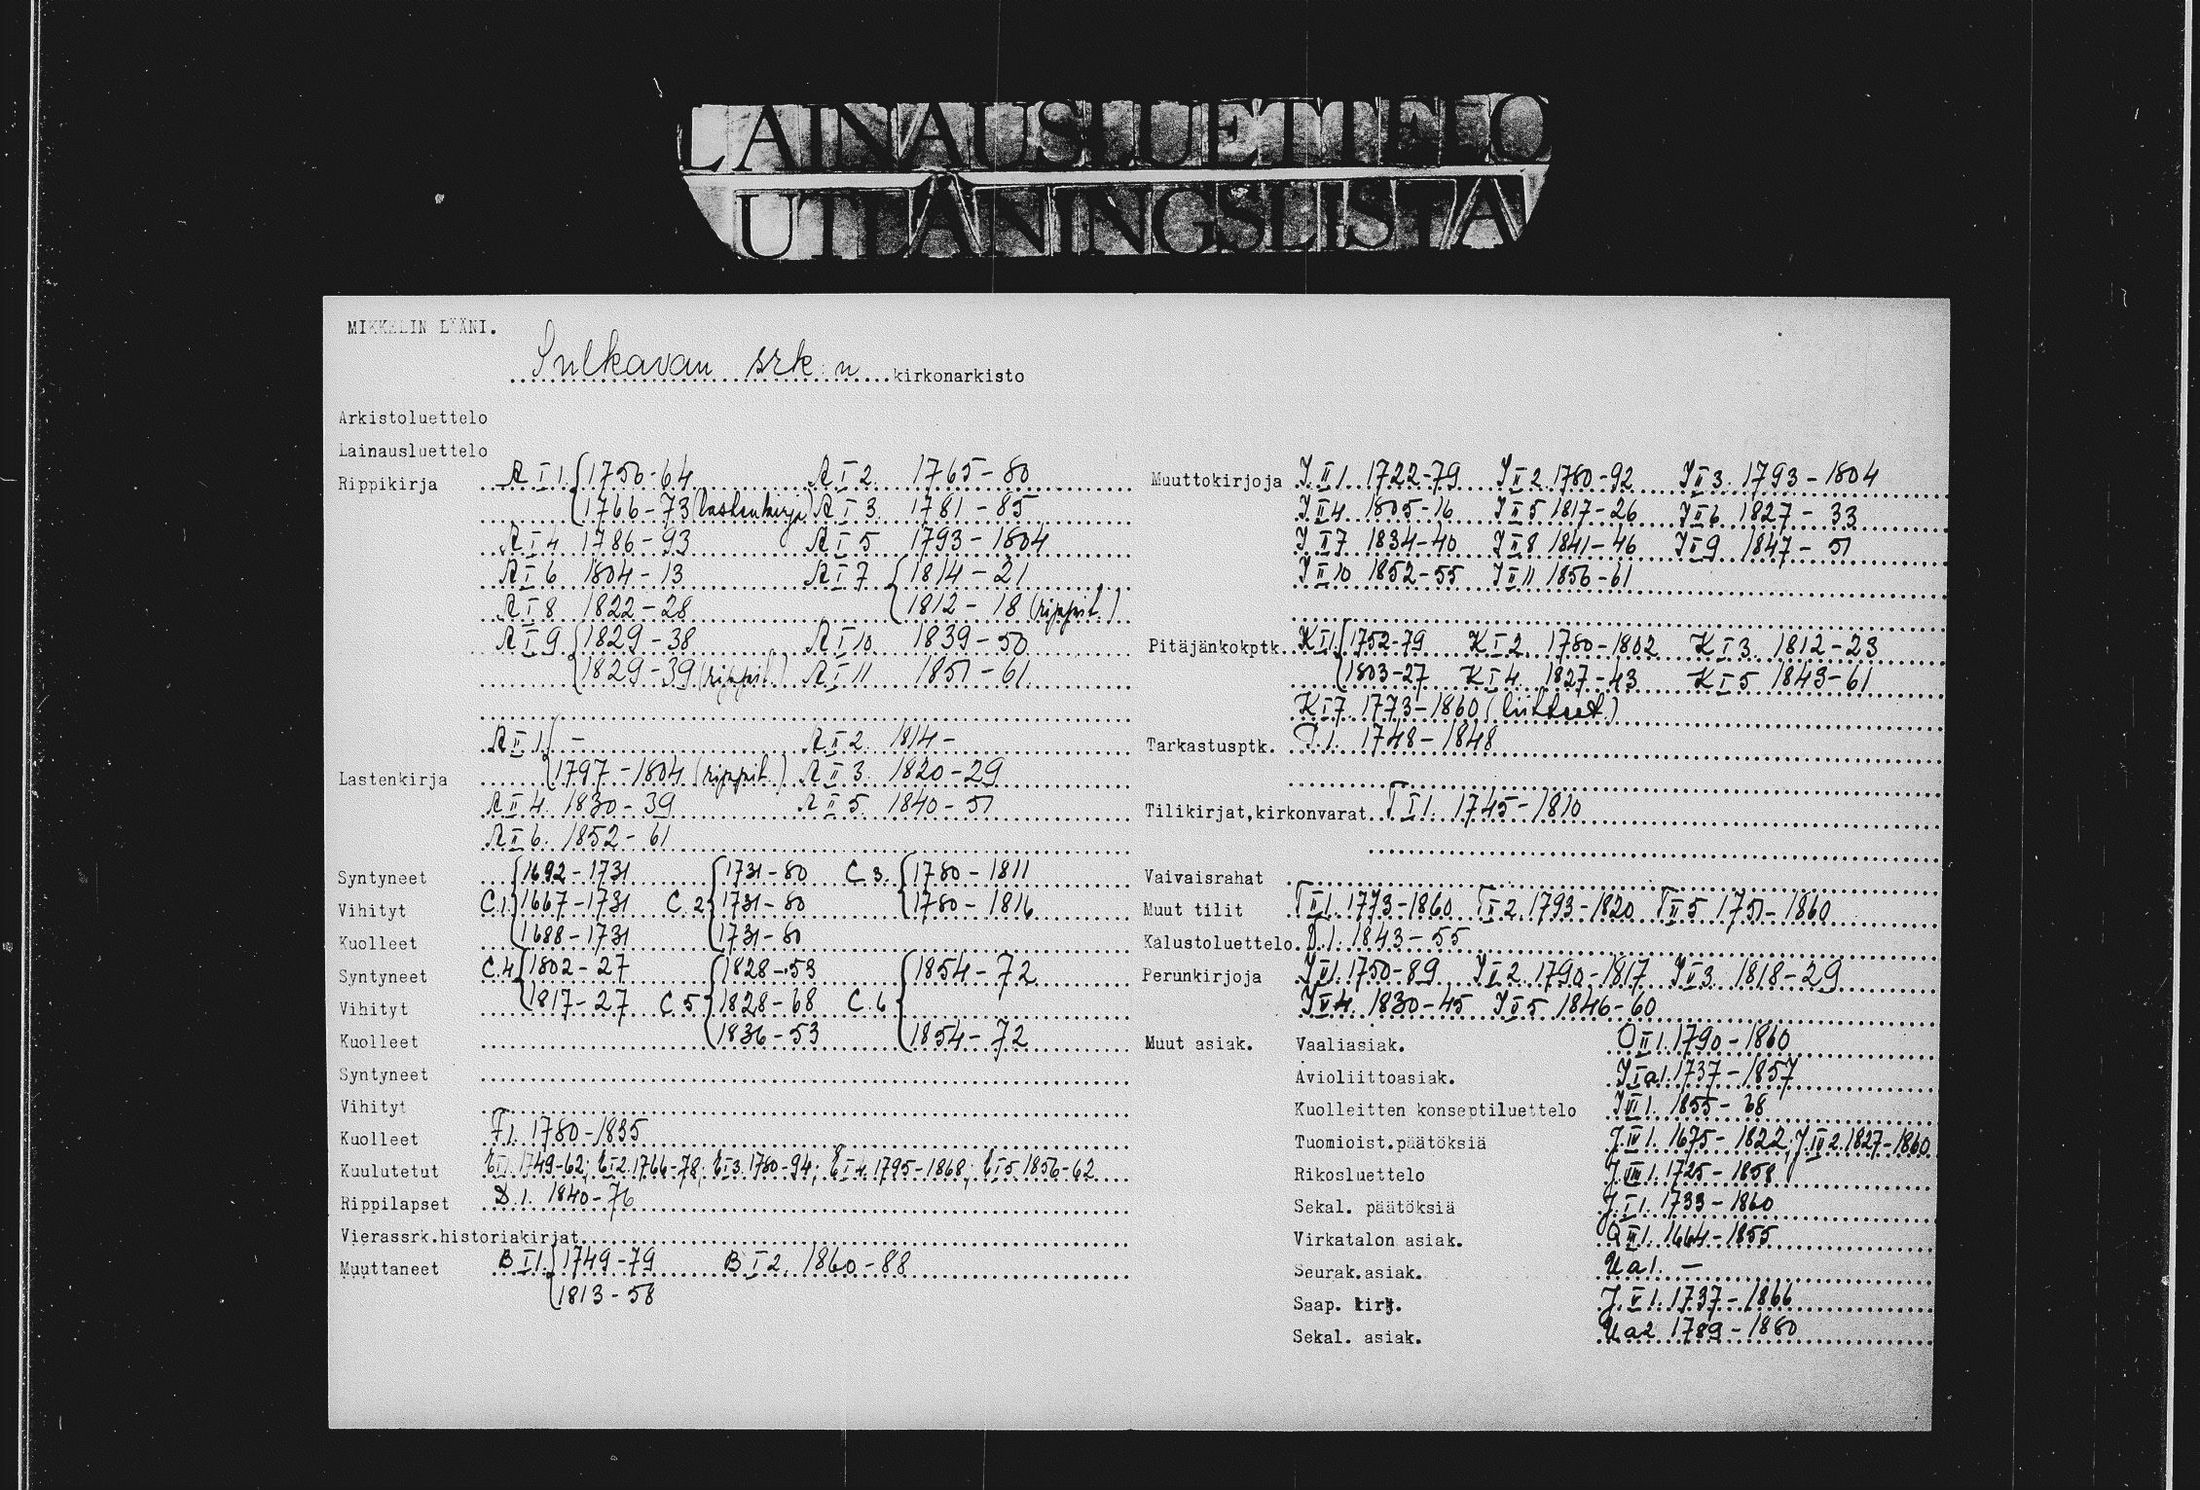 LAINAUSLUETTELO
UTLÅNINGSLISTA
MIKKELIN LÄÄNI.
Sulkavan srk:n kirkonarkisto
Arkistoluettelo
Lainausluettelo
Rippikirja
A I 1. 1756-64 A I 2. 1765-80
1766-73 (lastenkirja) A I 3. 1781-85
A I 4 1786-93 A I 5 1793-1804
A I 6 1804-13 A I 7 1814-21
A I 8 1822-28 1812-18 (rippil.)
A I 9 1829-38 A I 10 1839-50
1829-39 (rippil.) A I 11 1851-61
Lastenkirja
A II 1. - A II 2. 1814-
1797-1804 (rippil.) A II 3. 1820-29
A II 4. 1830-39 A II 5. 1840-51
A II 6. 1852-61
Syntyneet 1692-1731 1731-80 C.3. 1780-1811
Vihityt C.1. 1667-1731 C.2 1731-80 1780-1816
Kuolleet 1688-1731 1731-80
Syntyneet C.4 1802-27 1828-53 1854-72
Vihityt 1817-27 C.5 1828-68 C.6
Kuolleet 1836-53 1854-72
Syntyneet
Vihityt
Kuolleet F.1. 1780-1835
Kuulutetut E I 1. 1749-62; E I 2. 1766-78; E I 3. 1780-94; E I 4. 1795-1868; E I 5 1856-62
Rippilapset D.1. 1840-76
Vierassrk.historiakirjat
Muuttaneet B I 1. 1749-79 B I 2. 1860-88
1813-58
Muuttokirjoja J II 1. 1722-79 J II 2. 1780-92 J II 3. 1793-1804
J II 4 1805-16 J II 5 1817-26 J II 6 1827-33
J II 7 1834-40 J II 8 1841-46 J II 9 1847-51
J II 10 1852-55 J II 11 1856-61
Pitäjänkokptk. K I 1. 1752-79 K I 2. 1780-1802 K I 3. 1812-23
1803-27 K I 4. 1827-43 K I 5 1843-61
K I 7 1773-1860 (liitteet)
Tarkastusptk. 1. 1748-1848
Tilikirjat,kirkonvarat T I 1. 1745-1810
Vaivaisrahat
Muut tilit T II 1. 1773-1860 T II 2. 1793-1820 T II 5 1751-1860
Kalustoluettelo 1. 1843-55
Perunkirjoja 1. 1750-89 2. 1790-1817 3. 1818-29
4. 1830-45 5 1846-60
Muut asiak. Vaaliasiak. O II 1. 1790-1860
Avioliittoasiak. J I a 1. 1737-1857
Kuolleitten konseptiluettelo 1. 1855-68
Tuomioist.päätöksiä 1. 1675-1822, 2. 1827-1860
Rikosluettelo 1. 1725-1858
Sekal. päätöksiä J. I 1. 1733-1860
Virkatalon asiak. 1. 1664-1855
Seurak.asiak. U a 1. -
Saap. kirj. 1. 1737-1866
Sekal. asiak. U a 2 1789-1860